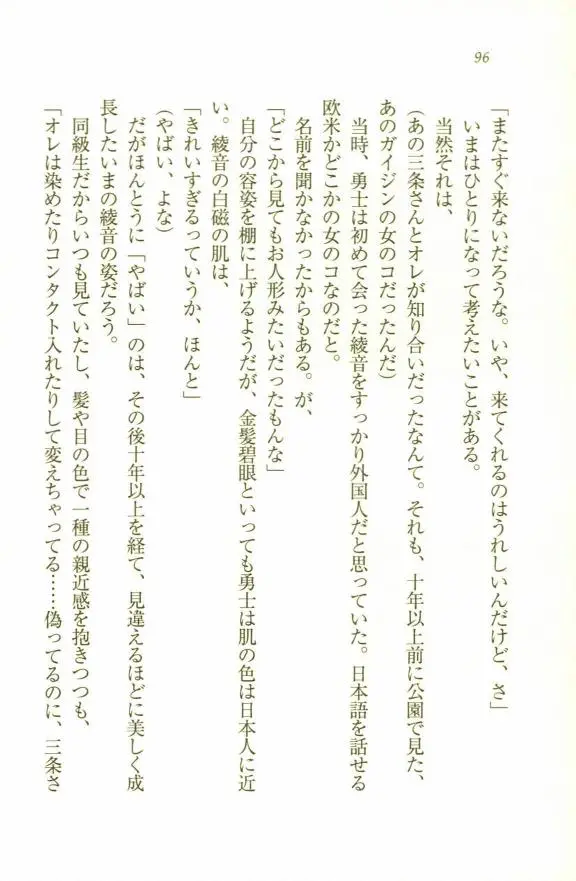 96
「またすぐ来ないだろうな。いや、来てくれるのはうれしいんだけど、さ」
いまはひとりになって考えたいことがある。
当然それは、
(あの三条さんとオレが知り合いだったなんて。それも、十年以上前に公園で見た、
あのガイジンの女のコだったんだ)
当時、勇士は初めて会った綾音をすっかり外国人だと思っていた。日本語を話せる
欧米かどこかの女のコなのだと。
名前を聞かなかったからもある。が、
「どこから見てもお人形みたいだったもんな」
自分の容姿を棚に上げるようだが、金髪碧眼といっても勇士は肌の色は日本人に近
い。綾音の白磁の肌は、
「きれいすぎるっていうか、ほんと」
(やばい、よな)
だがほんとうに「やばい」のは、その後十年以上を経て、見違えるほどに美しく成
長したいまの綾音の姿だろう。
同級生だからいつも見ていたし、髪や目の色で一種の親近感を抱きつつも、
「オレは染めたりコンタクト入れたりして変えちゃってる……偽ってるのに、三条さ